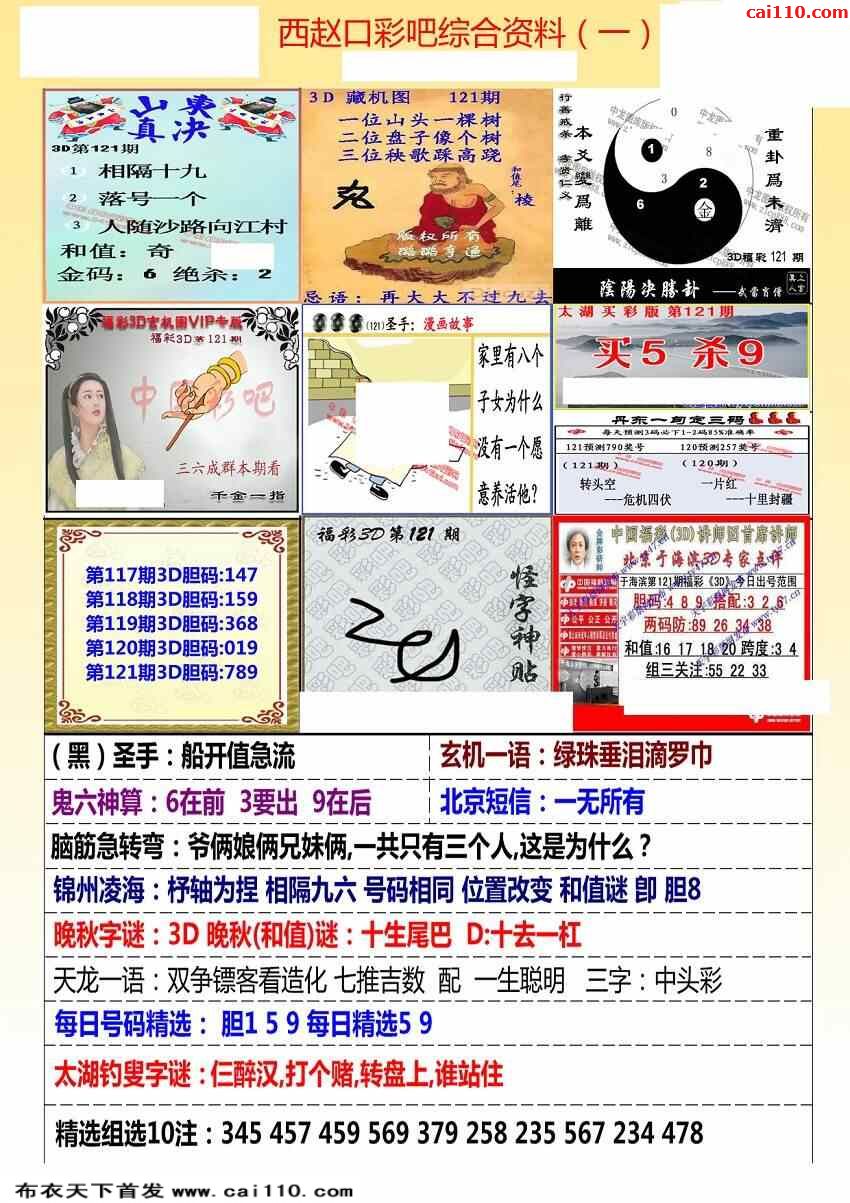 cai110.com
西赵口彩吧综合资料（一）
山夷
真决
3D第121期
1 相隔十九
2 落号一个
3 人随沙路向江村
和值：奇
金码：6 绝杀：2
3D 藏机图 121期
一位山头一棵树
二位盘子像个树
三位秧歌踩高跷
和值尾：棱
丸
版权所有
忌语：再大大不过九去
行善戒杀 孝贤仁义
本爻變爲離
重卦爲未濟
0
1
8
3
2
6
金
3D福彩 121 期
陰陽決勝卦 ——武當肖僧
福彩3D玄机图VIP专版
福彩3D第121期
中国彩吧
三六成群本期看
千金一指
(121)圣手：漫画故事
家里有八个
子女为什么
没有一个愿
意养活他？
太湖买彩版 第121期
买5 杀9
丹东一句定三码
每天预测3码必下1-2码85%准确率
121预测790奖号 120预测257奖号
（121期） （120期）
转头空 一片红
---危机四伏 ---十里封疆
第117期3D胆码:147
第118期3D胆码:159
第119期3D胆码:368
第120期3D胆码:019
第121期3D胆码:789
福彩3D第121 期
怪字神贴
中国福彩(3D)讲师团首席讲师
北京于海滨3D专家点评
于海滨第121期福彩《3D》今日出号范围
胆码:4 8 9 搭配:3 2 6
两码防:89 26 34 38
和值:16 17 18 20 跨度:3 4
组三关注:55 22 33
公平 公正 公开
（黑）圣手：船开值急流
玄机一语：绿珠垂泪滴罗巾
鬼六神算：6在前 3要出 9在后
北京短信：一无所有
脑筋急转弯：爷俩娘俩兄妹俩,一共只有三个人,这是为什么？
锦州凌海：杼轴为捏 相隔九六 号码相同 位置改变 和值谜 卽 胆8
晚秋字谜：3D 晚秋(和值)谜：十生尾巴 D:十去一杠
天龙一语：双争镖客看造化 七推吉数 配 一生聪明 三字：中头彩
每日号码精选： 胆1 5 9 每日精选5 9
太湖钓叟字谜：仨醉汉,打个赌,转盘上,谁站住
精选组选10注：345 457 459 569 379 258 235 567 234 478
布衣天下首发 www.cai110.com